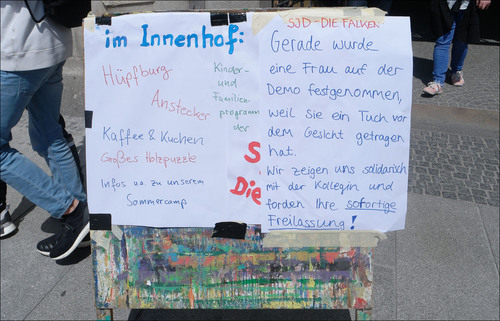 im Innenhof:
Hüpfburg
Anstecker
Kaffee & Kuchen
Großes Holzpuzzle
Infos ua zu unserem
Sommercamp
Kinder-
und
Familien-
programm
der
S
Die
SJD - DIE FALKEN
Gerade wurde
eine Frau auf der
Demo festgenommen,
weil sie ein Tuch vor
dem Gesicht getragen
hat.
Wir zeigen uns solidarisch
mit der Kollegin und
fordern Ihre sofortige
Freilassung!